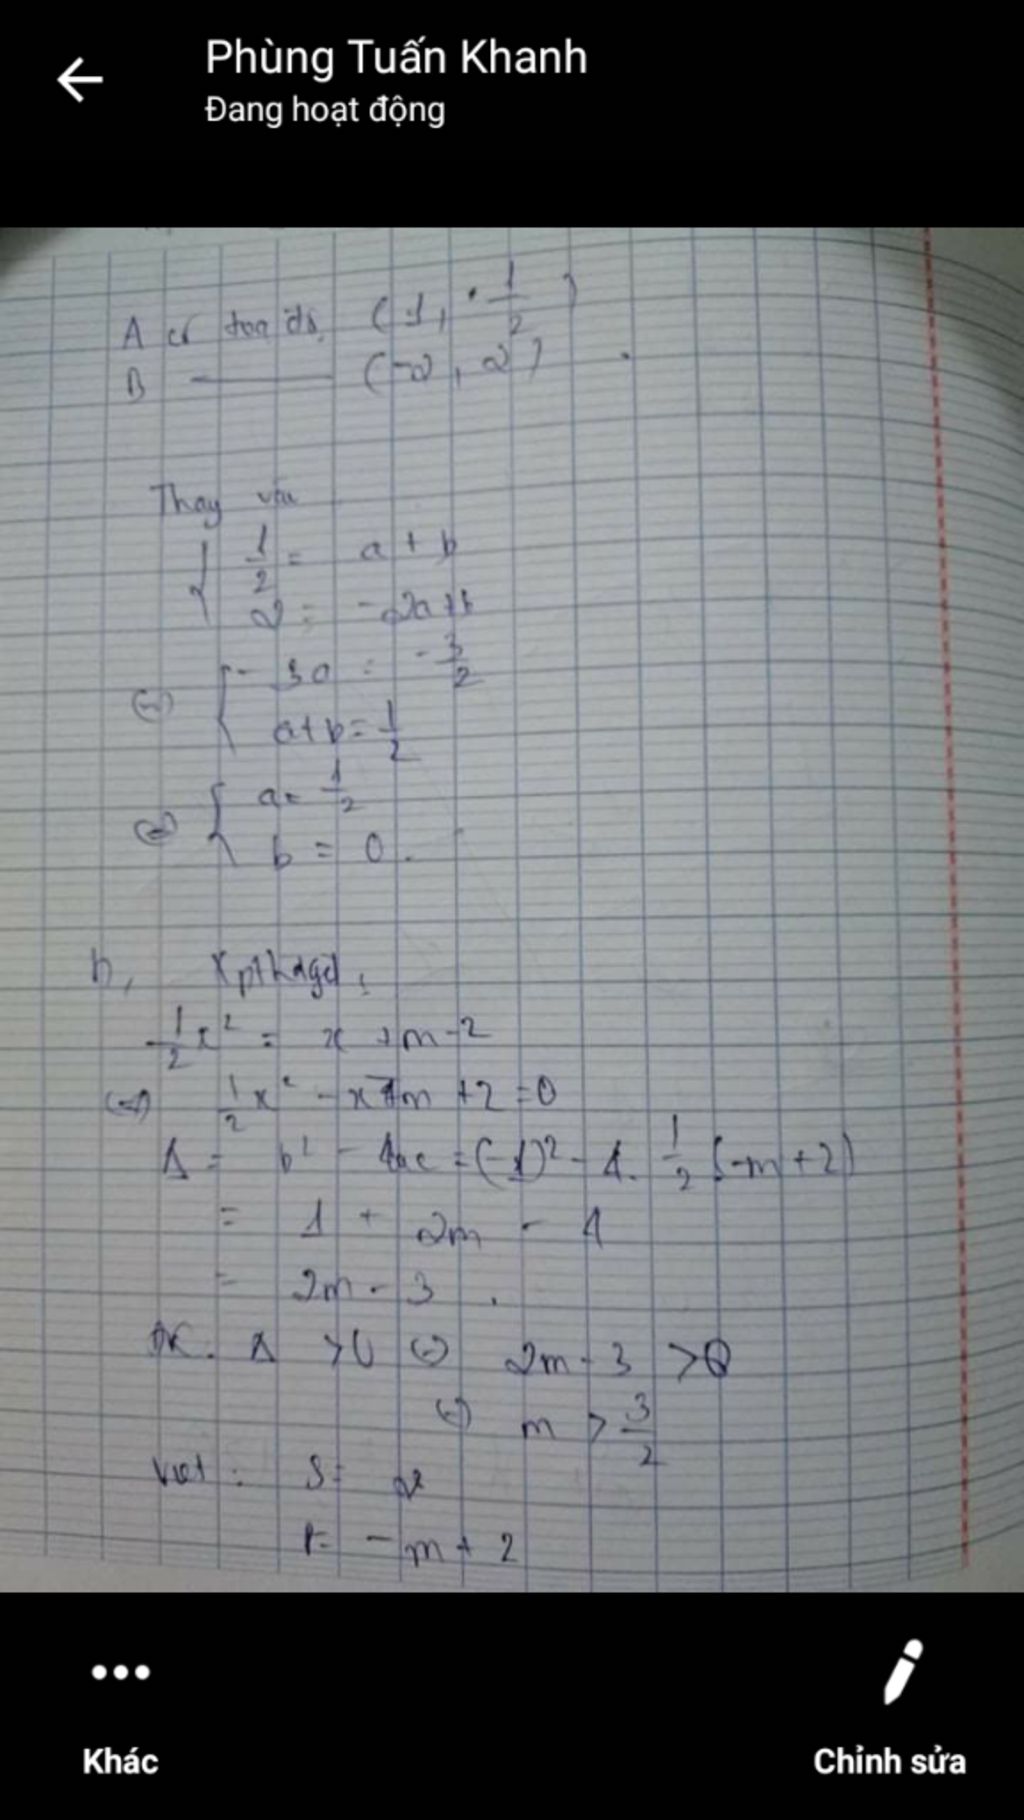 Phùng Tuấn Khanh
Đang hoạt động
A có toạ độ (1, 1/2)
B ——— (-2, 2)
Thay vào
{ 1/2 = a + b
2 = -2a + b
(=) { - 3a = - 3/2
a+b = 1/2
(=) { a = 1/2
b = 0.
b, Xpthđgđ:
1/2 x² = x + m - 2
(=) 1/2 x² - x - m + 2 = 0
Δ = b² - 4ac = (-1)² - 4. 1/2 (-m + 2)
= 1 + 2m - 4
= 2m - 3.
ĐK: Δ > 0 (=) 2m - 3 > 0
(=) m > 3/2
Viet: S = 2
P = -m + 2
Khác
Chỉnh sửa